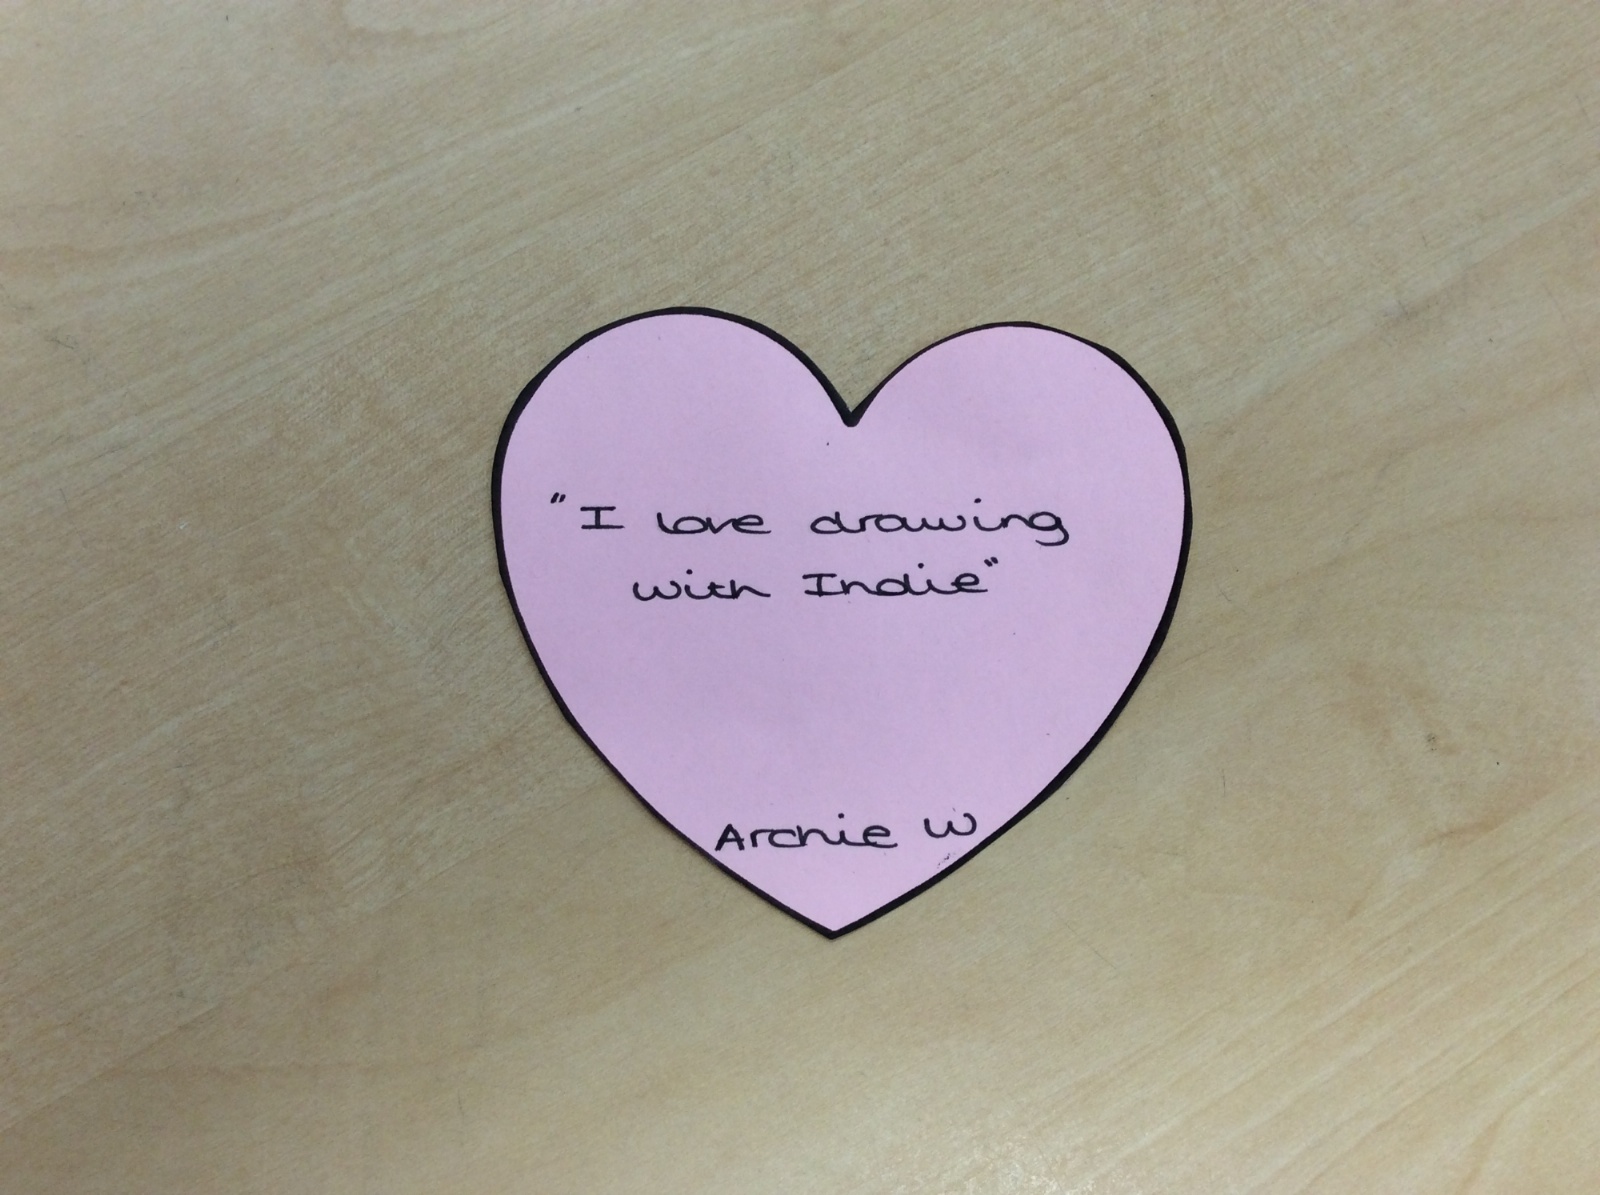 "I love drawing
with Indie"
Archie W